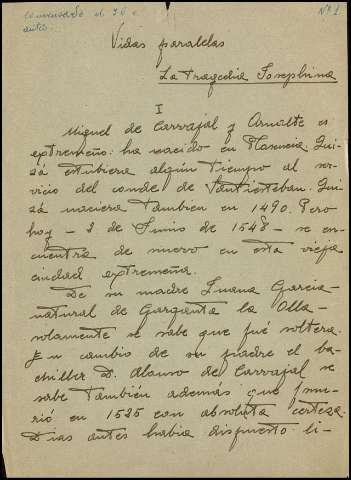 comenzado el 30 o
antes.
Nº 1
Vidas paralelas
La Tragedia Josephina
I
Miguel de Carvajal y Arnalte es
extremeño: ha nacido en Plasencia. Qui-
zá estubiera algún tiempo al ser-
vicio del conde de Santiesteban. Qui-
zá naciera tambien en 1490. Pero
hoy - 2 de Junio de 1548 - se en-
cuentra de nuevo en esta vieja
ciudad extremeña.
De su madre Juana Garcia -
natural de Garganta la Olla -
solamente se sabe que fué soltera.
En cambio de su padre el ba-
chiller D. Alonso de Carvajal se
sabe tambien además que mu-
rió en 1525 con absoluta certeza.
Dias antes habia dispuesto li-